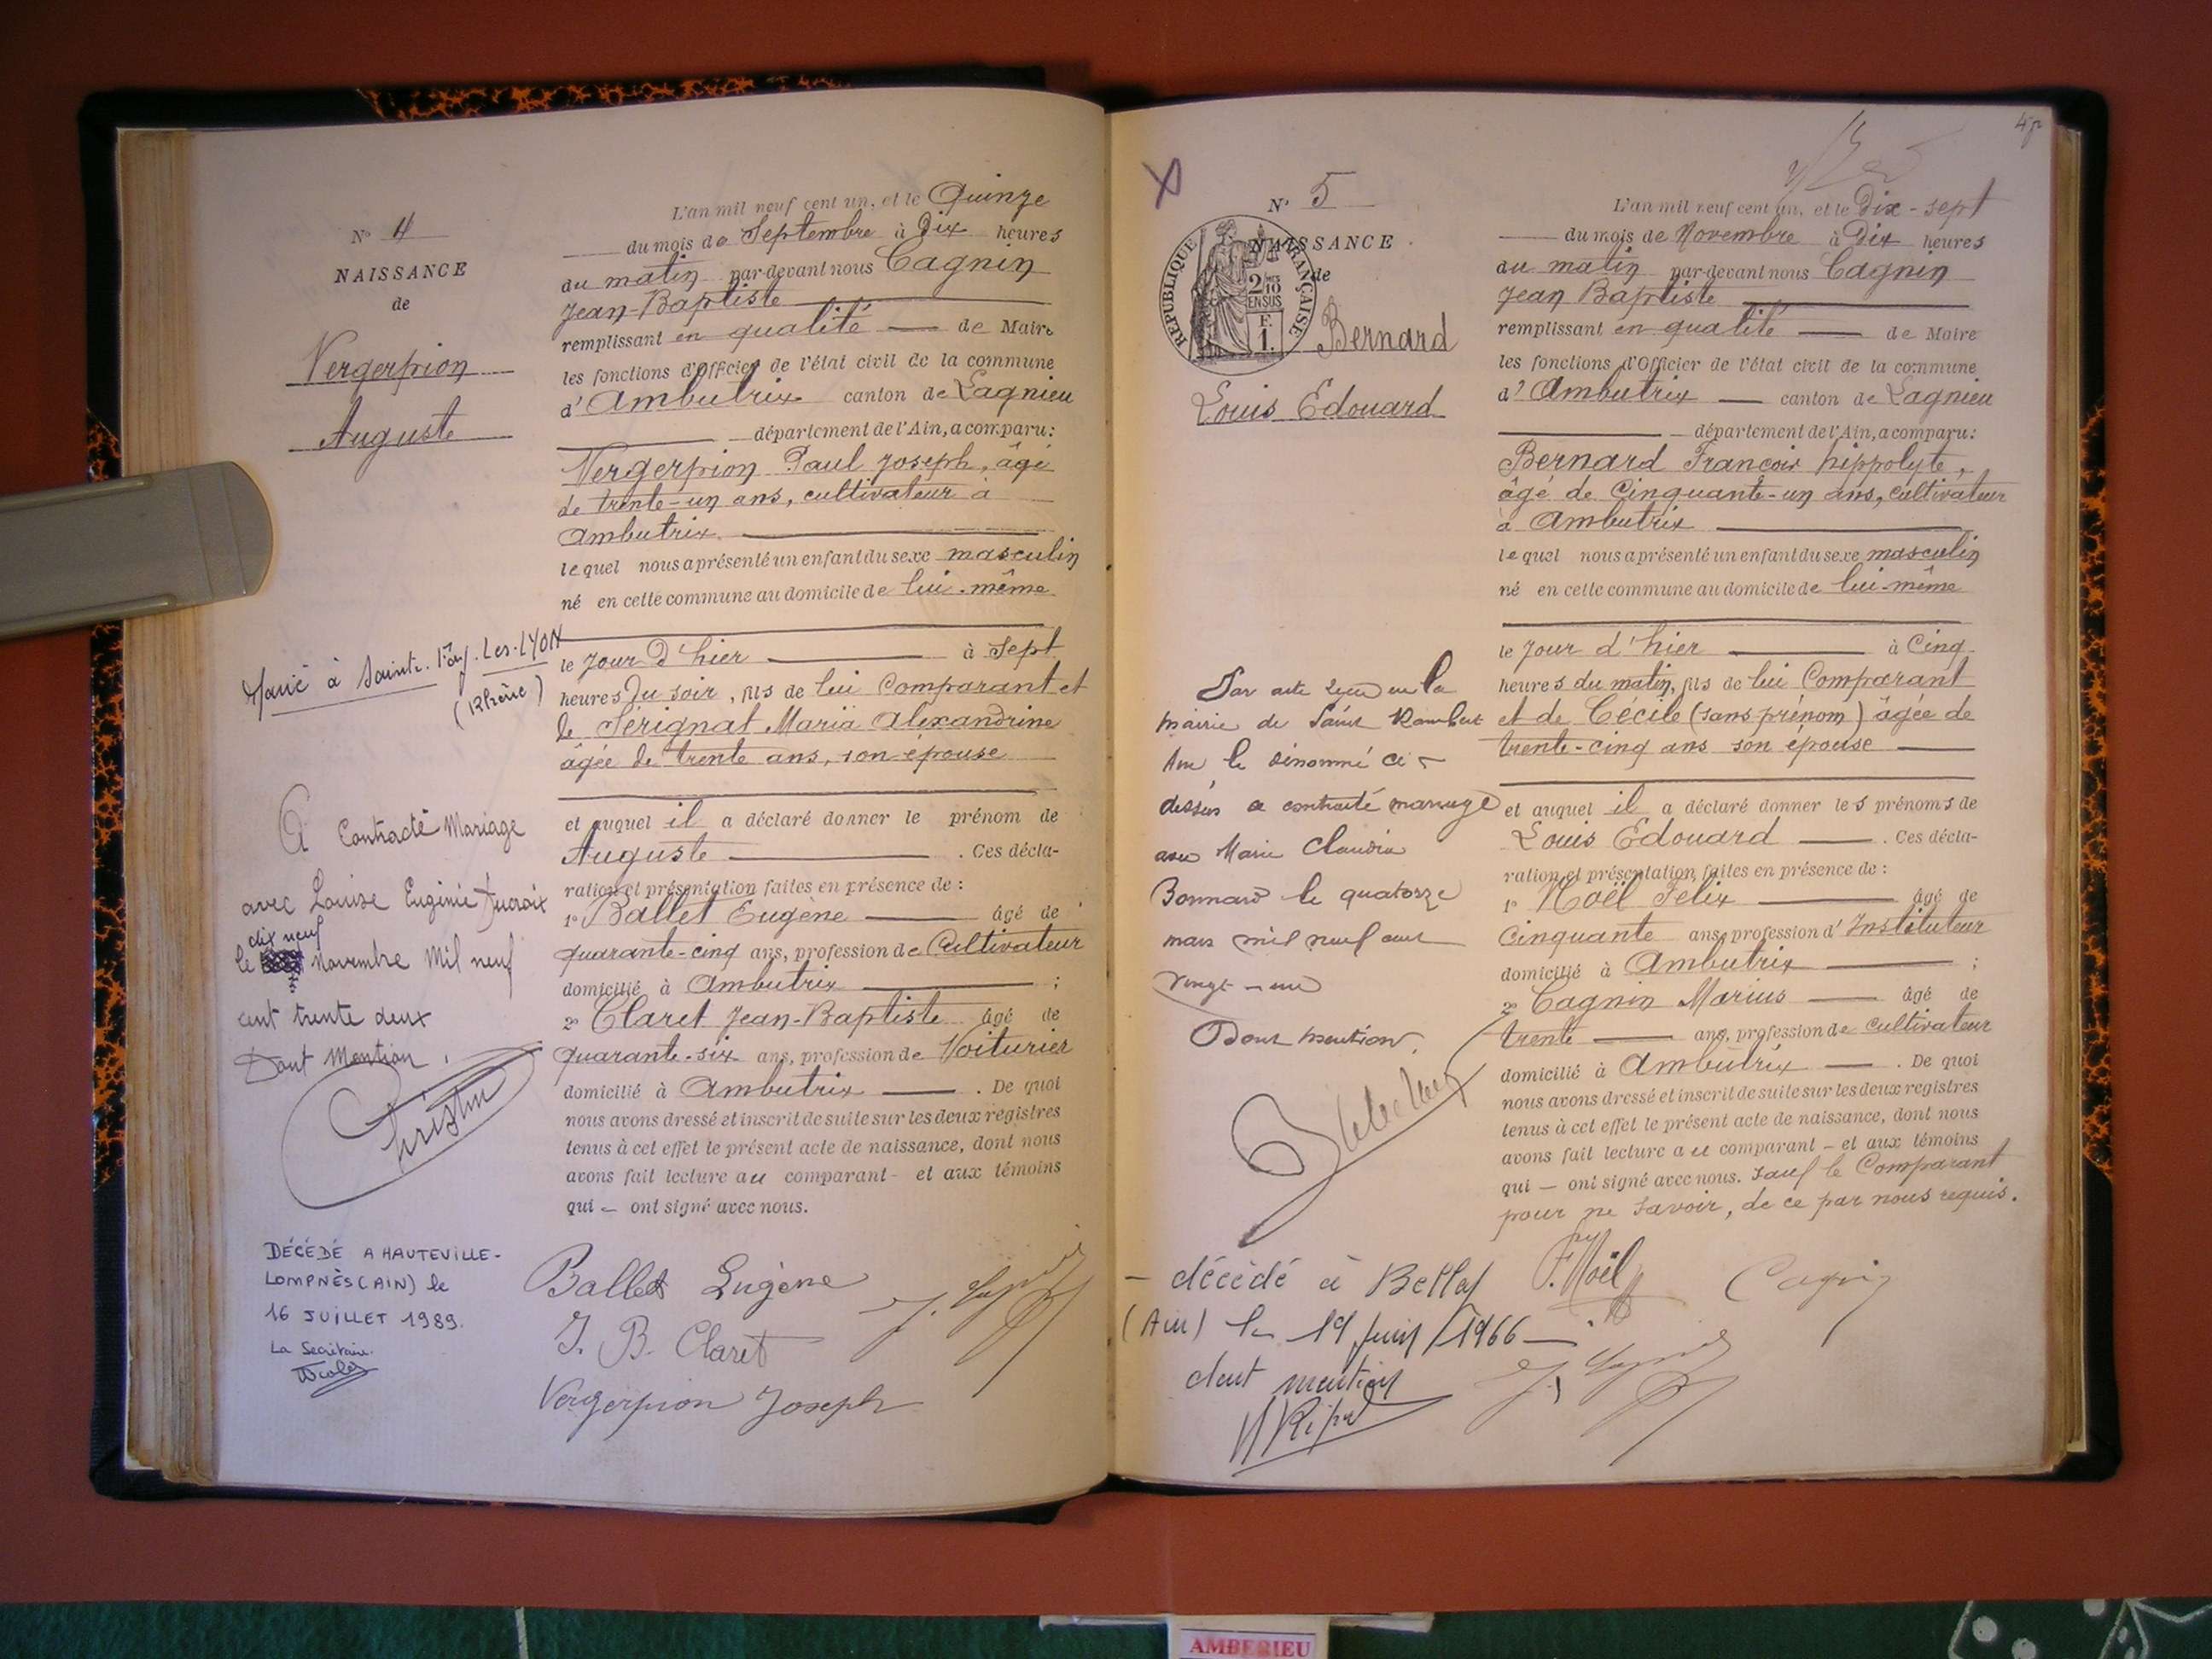 N° 4
NAISSANCE
de
Vergerpion
Auguste
Marié à Sainte-Foy-Les-LYON
(Rhône)
A Contracté Mariage
avec Louise Eugénie Ducroix
dix neuf
le Novembre Mil neuf
cent trente deux
Dont Mention.
DÉCÉDÉ A HAUTEVILLE-
LOMPNÈS (AIN) le
16 JUILLET 1989.
La Secrétaire
L'an mil neuf cent un, et le Quinze
du mois de Septembre à Dix heures
du matin par-devant nous Cagnin
Jean-Baptiste
remplissant en qualité de Maire
les fonctions d'Officier de l'état civil de la commune
d'Ambutrix canton de Lagnieu
département de l'Ain, a comparu:
Vergerpion Paul Joseph, âgé
de trente-un ans, cultivateur à
Ambutrix
lequel nous a présenté un enfant du sexe masculin
né en cette commune au domicile de lui-même
le jour d'hier à Sept
heures du soir, fils de lui Comparant et
de Sérignat Maria Alexandrine
âgée de trente ans, son épouse
et auquel il a déclaré donner le prénom de
Auguste. Ces décla-
ration et présentation faites en présence de :
1° Ballet Eugène âgé de
quarante-cinq ans, profession de Cultivateur
domicilié à Ambutrix ;
2° Claret Jean-Baptiste âgé de
quarante-six ans, profession de Voiturier
domicilié à Ambutrix. De quoi
nous avons dressé et inscrit de suite sur les deux registres
tenus à cet effet le présent acte de naissance, dont nous
avons fait lecture au comparant - et aux témoins
qui - ont signé avec nous.
Ballet Eugène
J. B. Claret
Vergerpion Joseph
N° 5
NAISSANCE
de
REPUBLIQUE FRANÇAISE
2/10
EN SUS
F.
1.
Bernard
Louis Edouard
Par acte reçu en la
mairie de Saint Rambert
Ain le dénommé ci-
dessus a contracté mariage
avec Marie Claudia
Bonnard le quatorze
mars mil neuf cent
vingt-
Dont mention.
- décédé à Belley
(Ain) le 19 Juin 1966 -
dont mention
L'an mil neuf cent un, et le Dix-sept
du mois de Novembre à Dix heures
du matin par-devant nous Cagnin
Jean Baptiste
remplissant en qualité de Maire
les fonctions d'Officier de l'état civil de la commune
d'Ambutrix canton de Lagnieu
département de l'Ain, a comparu:
Bernard François hippolyte,
âgé de Cinquante-un ans, cultivateur
à Ambutrix
lequel nous a présenté un enfant du sexe masculin
né en cette commune au domicile de lui-même
le jour d'hier à Cinq
heures du matin, fils de lui Comparant
et de Cécile (sans prénom) âgée de
trente-cinq ans son épouse
et auquel il a déclaré donner les prénoms de
Louis Edouard. Ces décla-
ration et présentation faites en présence de :
1° Noël Félix âgé de
Cinquante ans, profession d'Instituteur
domicilié à Ambutrix ;
2° Cagnin Marius âgé de
trente ans, profession de cultivateur
domicilié à Ambutrix. De quoi
nous avons dressé et inscrit de suite sur les deux registres
tenus à cet effet le présent acte de naissance, dont nous
avons fait lecture au comparant - et aux témoins
qui - ont signé avec nous. Sauf le Comparant
pour ne savoir, de ce par nous requis.
F. Noël
Cagnin
AMBERIEU